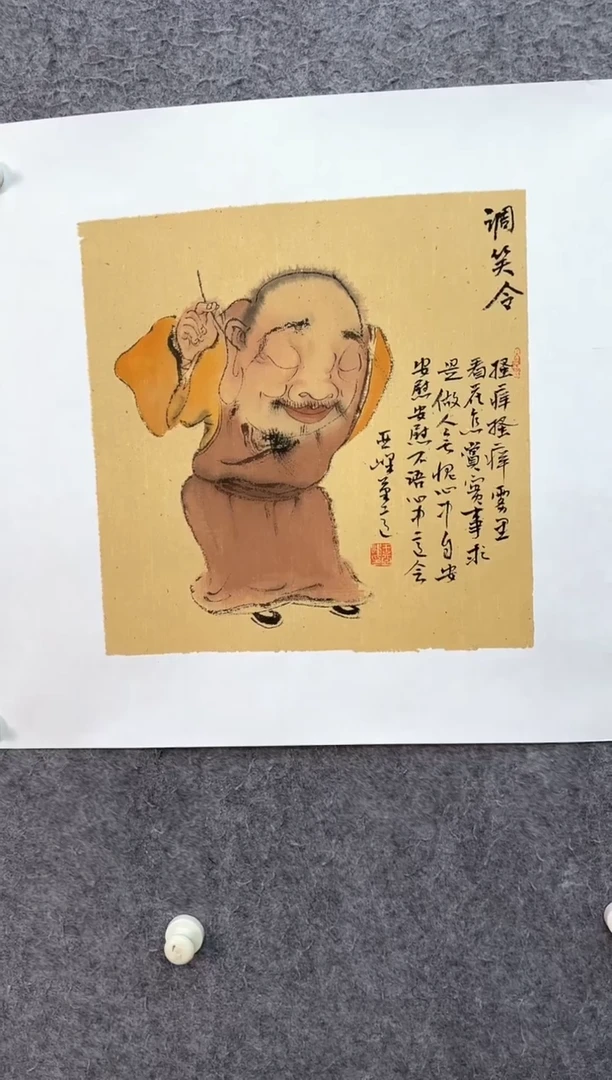 调笑令
搔痒搔痒雾里
看花怎赏实事求
是做人无愧心中自安
安慰安慰不语心中意会
亚